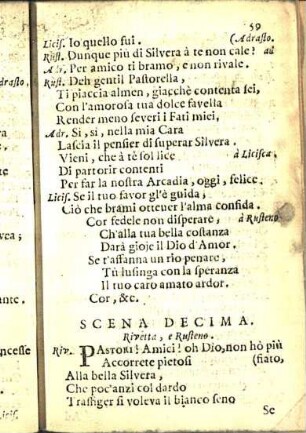 59
Licis. Io quello fui. (Adrasto.
Rust. Dunque più di Silvera à te non cale? ad
Adr. Per amico ti bramo, e non rivale.
Rust. Deh gentil Pastorella,
Ti piaccia almen, giacchè contenta sei,
Con l'amorosa tua dolce favella
Render meno severi i Fati miei,
Adr. Si, si, nella mia Cara
Lascia il pensier di superar Silvera.
Vieni, che à tè sol lice à Licisca.
Di partorir contenti
Per far la nostra Arcadia, oggi, felice.
Licis. Se il tuo favor gl'è guida,
Ciò che brami ottener l'alma confida.
Cor fedele non disperare, à Rusteno
Ch'alla tua bella costanza
Darà gioje il Dio d'Amor.
Se t'affanna un rio penare,
Tù lusinga con la speranza
Il tuo caro amato ardor.
Cor, &c.
SCENA DECIMA.
Rivetta, e Rusteno.
Riv. PAstori! Amici! oh Dio, non hò più
Accorrete pietosi (fiato,
Alla bella Silvera,
Che poc'anzi col dardo
Trafiger si voleva il bianco seno
Se